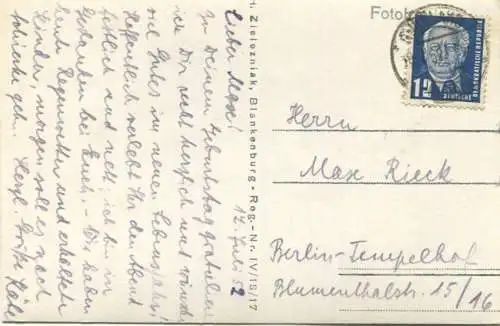 17. Juli 52
Lieber Max!
Zu Deinem Geburtstag gratuliere
ich Dir recht herzlich und wünsche
viel Gutes im neuen Lebensjahr!
Hoffentlich verlebt Ihr den Abend
festlich und nett; ich bin in
Gedanken bei Euch. - Wir haben
heute Regenwetter und erkältete
Kinder, morgen soll es nach
geh. Herzl. Grüße Käte
H. Zielezniak, Blankenburg - Reg.-Nr. IV/15/17
Foto
12
DEUTSCHE
DEMOKRATISCHE REPUBLIK
Herrn
Max Rieck
Berlin-Tempelhof
Blumenthalstr. 15/16